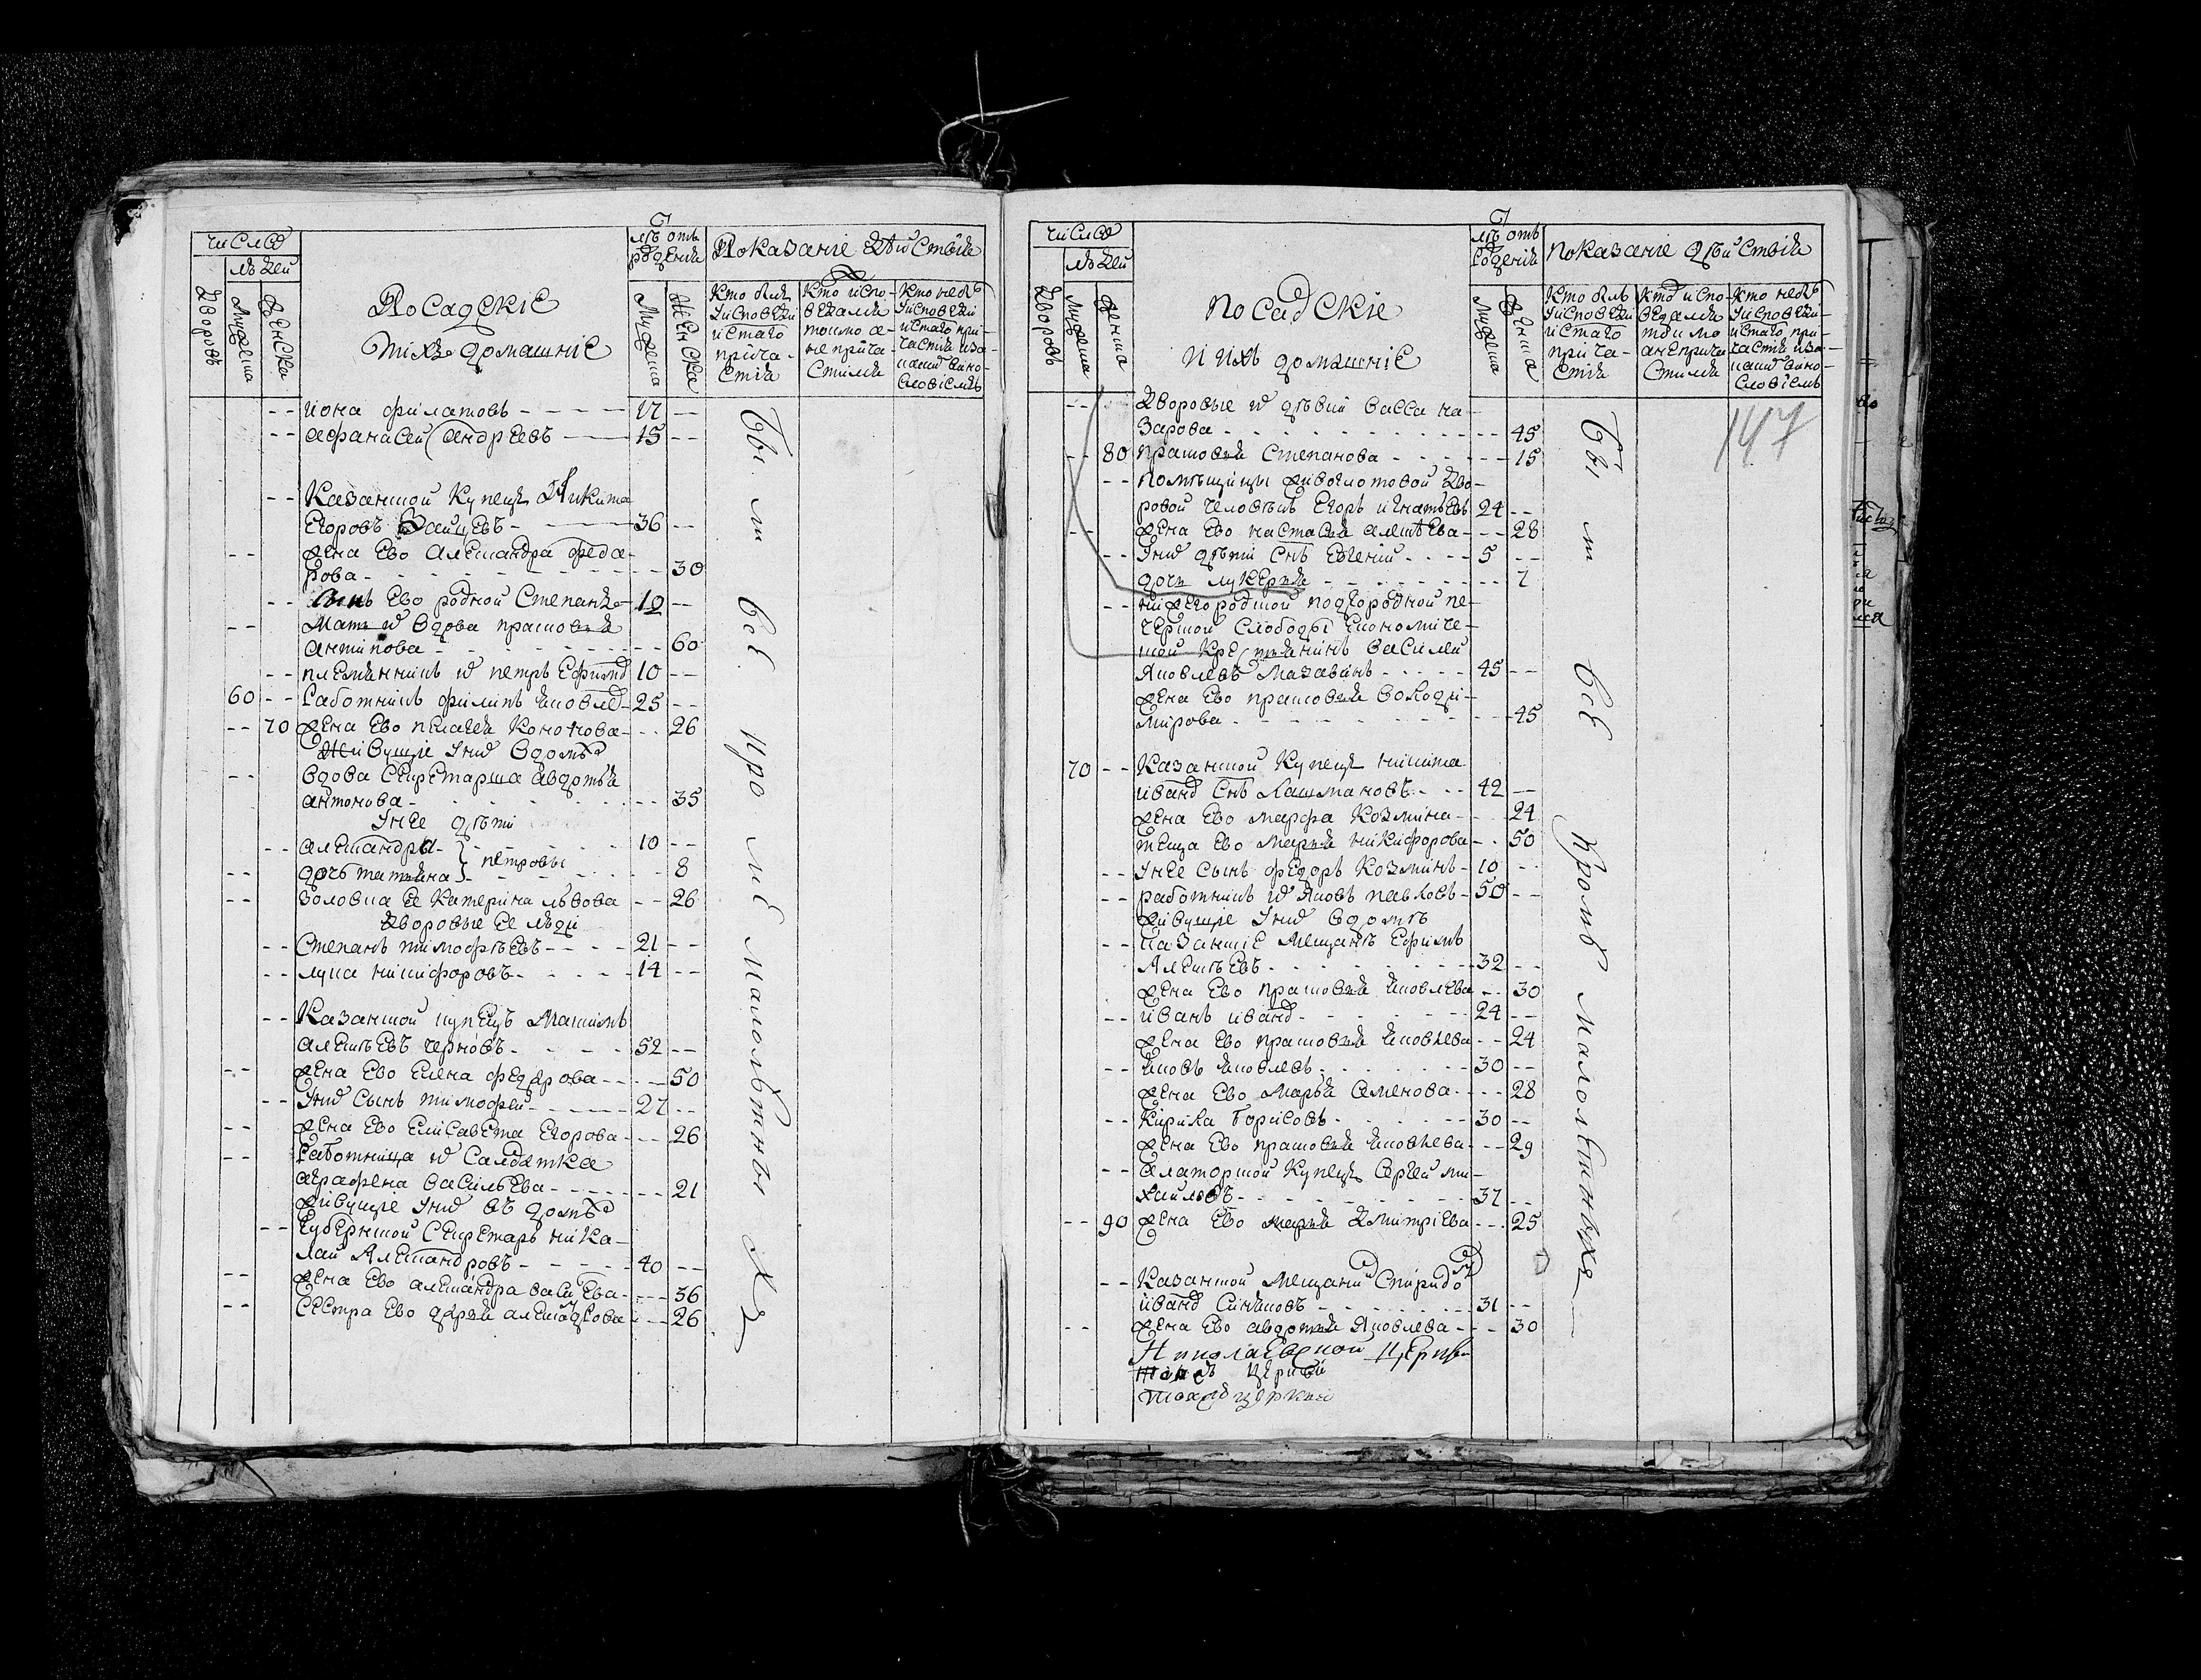 число
людей
Дворовъ
Мужеска
Женска
Посадскіе
и ихъ домашніе
лѣтъ отъ рожденія
Мужеска
Женска
Показаніе действія
Кто былъ у исповеди и святаго причастія
Кто исповедался токмо а не причастился
Кто не былъ у исповеди и святаго причастія
иона филатовъ - - - - 17 --
-- афанасей андреевъ - - 15 --
-- Казанской купецъ Никита
Егоровъ Зайцевъ - - 36 --
-- жена Ево Александра федо-
рова - - - - 30
-- Сынъ Ево родной Степанъ - 10 --
-- Мать Ево вдова прасковья
антипова - - - - 60
-- племянникъ Ево петръ Ефимов 10 --
60 -- Работникъ филипъ яковлев - 25 --
-- 70 жена Ево пелагея Кононова - - 26
Живущіе у них в доме
-- вдова Секретарша авдотья
антонова - - - - 35
у нее дѣти
-- александръ } петровы 10 --
-- дочь татьяна } - - 8
-- золовка Ее Катерина львова - - 26
Дворовые Ее люди
-- Степанъ тимофѣевъ - - - 21 --
-- лука никифоровъ - - - 14 --
-- Казанской купецъ Максимъ
алексѣевъ чернов - - - 52 --
-- жена Ево Елена федорова - - 50
-- у них Сынъ тимофей - - 27 --
-- жена Ево Елисавета Егорова - - 26
-- Работница их Салдатка
аграфена васильева - - - 21
живущіе у них въ доме
-- Губернской Секретарь Нико-
лай Александровъ - - - 40 --
-- жена Ево александра васильева - - 36
-- Сестра Ево дарья александрова - - 26
Бы ли все кро ме малолѣтны хъ
число
людей
Дворовъ
Мужеска
Женска
Посадскіе
и ихъ домашніе
лѣтъ отъ рожденія
Мужеска
Женска
показаніе дѣйствія
Кто былъ у исповеди и святаго причастія
Кто исповедался токмо а не причастился
Кто не былъ у исповеди и святаго причастія
147
-- Дворовые Ево дѣвки васса на-
зарова - - - - 45
-- 80 прасковья Степанова - - - 15
-- помѣщицы Дво-
ровой человѣкъ Егоръ игнатьевъ 24 --
-- жена Ево настасья алексѣева - - 28
-- у них дѣти Снъ Евгений - - 5 --
дочь лукерья - - - 7
-- нижегородской подгородной пе-
черской Слободы Економиче-
ской крестьянинъ василей
яковлевъ - - - 45 --
жена Ево прасковья володи-
мирова - - - 45
70 -- Казанской купецъ никита
иванов Снъ - - 42 --
жена Ево марфа козмина - - 24
теща Ево марья никифорова - - 50
-- у нее Сынъ федоръ козминъ - 10 --
-- работникъ Ево яковъ павловъ - 50 --
живущіе у них в домѣ
-- Казанскіе мещанѣ Ефимъ
Алексѣевъ - - - 32 --
жена Ево прасковья яковлева - - 30
-- иванъ иванов - - - 24 --
жена Ево прасковья яковлева - - 24
-- яковъ яковлевъ - - - 30 --
жена Ево марья Семенова - - 28
-- Кирила борисовъ - - - 30 --
жена Ево прасковья яковлева - - 29
-- алаторской купецъ Сергей ми-
хайловъ - - - 37 --
-- 90 жена Ево марья дмитріева - - 25
-- Казанской мещанин Спиридон
иванов - - - 31 --
-- жена Ево авдотья яковлева - - 30
Николаевской церкви
церкви
церкви
Бы ли все кромѣ малолѣтныхъ